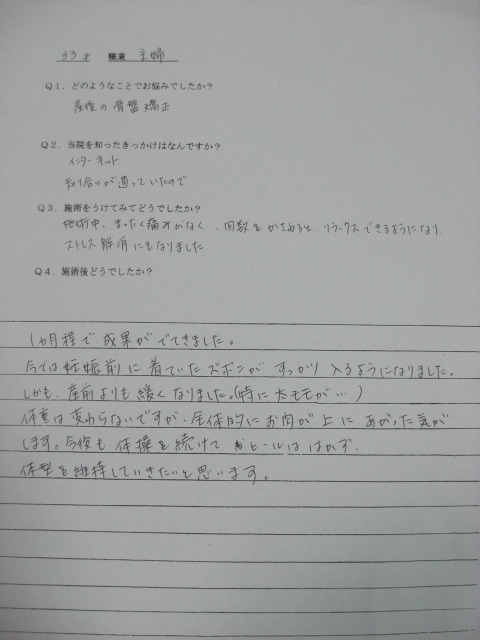 33才 職業 主婦
Q1．どのようなことでお悩みでしたか？
産後の骨盤矯正
Q2．当院を知ったきっかけはなんですか？
インターネット
知り合いが通っていたので
Q3．施術をうけてみてどうでしたか？
施術中、まったく痛みがなく、回数をかさねると、リラックスできるようになり
ストレス解消にもなりました。
Q4．施術後どうでしたか？
1ヵ月程で成果がでてきました。
今では妊娠前に着ていたズボンがすっかり入るようになりました。
しかも、産前よりも緩くなりました。(特に太モモが…)
体重は変わらないですが、全体的にお肉が上にあがった気が
します。今後も体操を続けてヒールははかず、
体型を維持していきたいと思います。